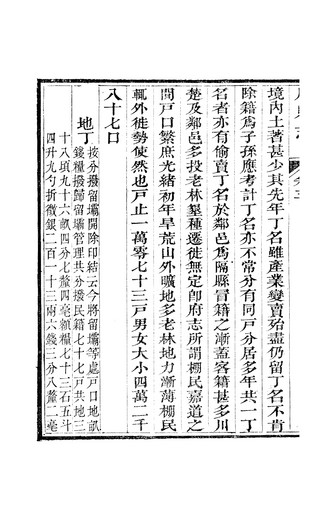 境內土著甚少其先年丁名雖產業變賣殆盡仍留丁名不肯
除籍爲子孫應考計丁名亦不常分有同戶分居多年共一丁
名者亦有偷賣丁名於鄰邑爲隔縣冒籍之漸蓋客籍甚多川
楚及鄰邑多投老林墾種遷徙無定卽府志所謂棚民嘉道之
間戶口繁庶光緒初年旱荒山外曠地多老林地力漸薄棚民
輒外徙勢使然也戶止一萬零七十三戶男女大小四萬二千
八十七口
地丁
按分撥留壩開除印結云今將留壩等處戶口地畝
錢糧撥歸留壩管理共分撥民籍七十七戶共地三
十八頃九十六畝四分七釐四毫額糧七十三石五斗
四升九勺折徵銀二百一十三兩六錢三分八釐二毫